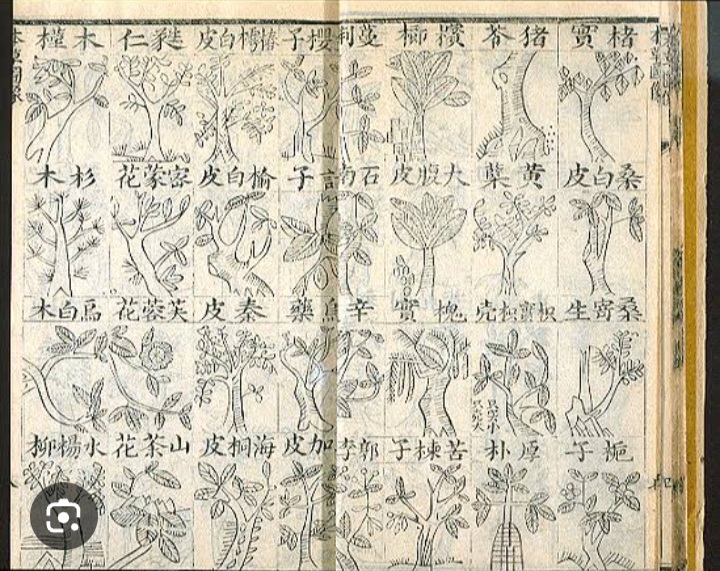 楮實 猪苓 檳榔 蔓荊 櫻子 椿樗白皮 蕤仁 木槿
桑白皮 黃蘗 大腹皮 石南 訶子 榆白皮 密蒙花 杉木
桑寄生 枳實枳壳 槐實 辛 烏藥 秦皮 芙蓉花 烏白木
梔子 厚朴 苦楝子 李 加皮 海桐皮 山茶花 水楊柳